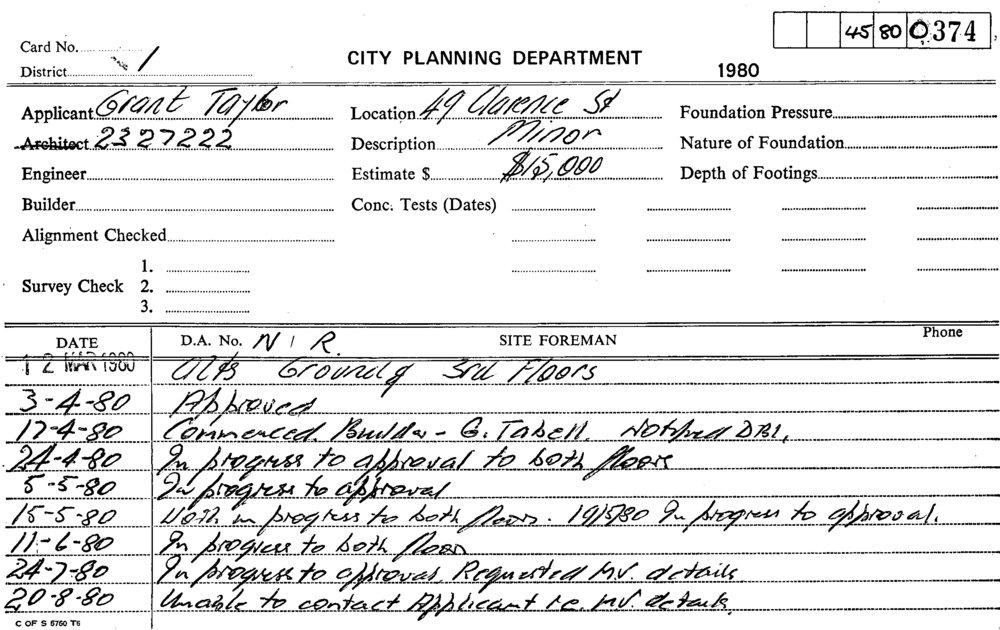 45 80 0374
Card No. 1
CITY PLANNING DEPARTMENT
District
1980
Applicant Grant Taylor Location 49 Clarence St Foundation Pressure
Architect 2327222 Description Minor Nature of Foundation
Engineer Estimate $ $15,000 Depth of Footings
Builder Conc. Tests (Dates)
Alignment Checked
1.
Survey Check 2.
3.
DATE D.A. No. N I R. SITE FOREMAN Phone
12 MAR 1980 Alts Ground & 3rd Floors
3-4-80 Approved
17-4-80 Commenced. Builder - G. Tabell. Notified DBI.
24-4-80 In progress to approval to both floors
5-5-80 In progress to approval
15-5-80 Work in progress to both floors. 19/5/80 In progress to approval.
11-6-80 In progress to both floors
24-7-80 In progress to approval. Requested M.V. details
20-8-80 Unable to contact Applicant re. M.V. details.
C OF S 5760 T6